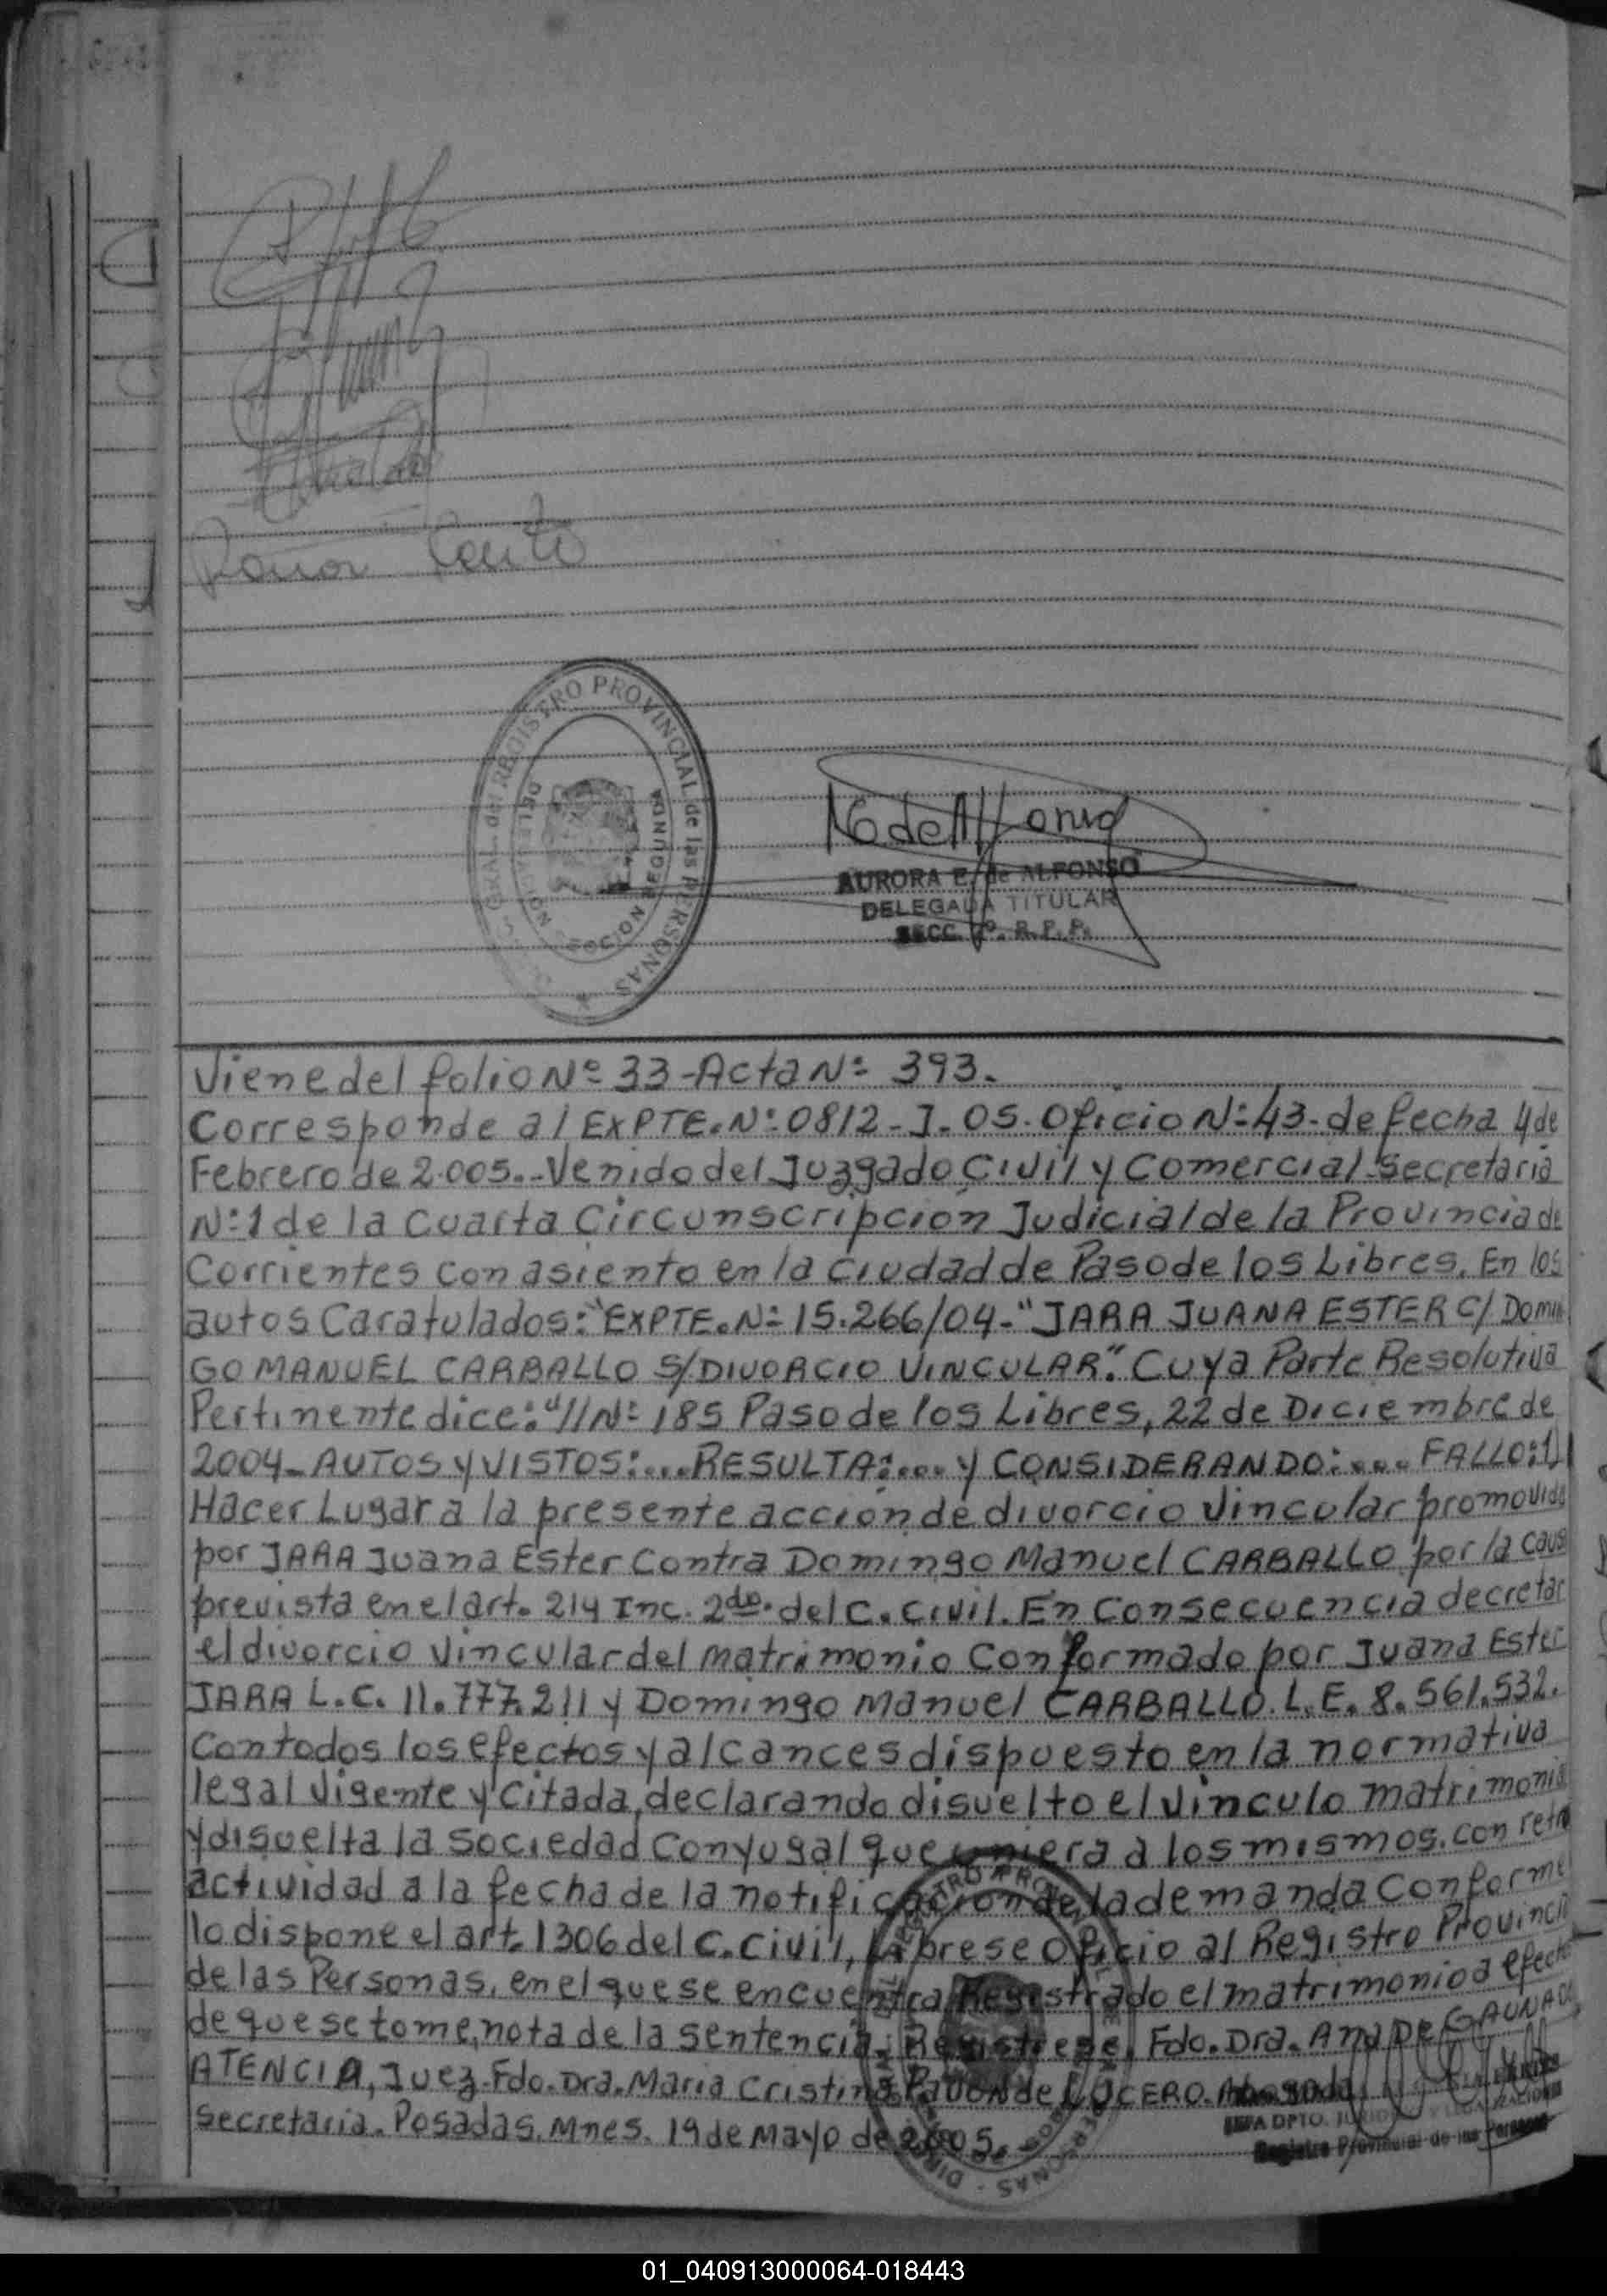 REGISTRO PROVINCIAL de las PERSONAS
DELEGACION SECC. SEGUNDA
AURORA E. de ALFONSO
DELEGADA TITULAR
SECC. 2º. R. P. P.
Viene del folio Nº 33-Acta Nº 393.
Corresponde al EXPTE. Nº 0812-J-05. Oficio Nº 43. de fecha 4 de
Febrero de 2.005.- Venido del Juzgado Civil y Comercial-Secretaria
Nº 1 de la Cuarta Circunscripcion Judicial de la Provincia de
Corrientes con asiento en la Ciudad de Paso de los Libres. En los
autos Caratulados: "EXPTE. Nº 15.266/04-"JARA JUANA ESTER C/ DOMIN
GO MANUEL CARBALLO S/DIVORCIO VINCULAR". Cuya Parte Resolutiva
Pertinente dice: "//Nº 185 Paso de los Libres, 22 de Diciembre de
2004- AUTOS y VISTOS:...RESULTA:... y CONSIDERANDO:.... FALLO:1)
Hacer Lugar a la presente acción de divorcio Vincular promovida
por JARA Juana Ester Contra Domingo Manuel CARBALLO por la caus
prevista en el art. 214 Inc. 2do. del C. Civil. En Consecuencia decretar
el divorcio Vincular del matrimonio Conformado por Juana Ester
JARA L.C. 11.777.211 y Domingo Manuel CARBALLO. L.E. 8.561.532.
Con todos los efectos y alcances dispuesto en la normativa
legal Vigente y Citada, declarando disuelto el Vinculo matrimonia
y disuelta la Sociedad Conyugal que uniera a los mismos, con retro
actividad a la fecha de la notificación de la demanda Conforme
lo dispone el art. 1306 del C. Civil, Librese Oficio al Registro Provinci
de las Personas, en el que se encuentra Registrado el matrimonio a efecto
de que se tome nota de la Sentencia. Registrese. Fdo. Dra. Ana De GAUNA DE
ATENCIA, Juez. Fdo. Dra. Maria Cristina Pavon de LUCERO. Abogada
Secretaria. Posadas. Mnes. 19 de Mayo de 2005.-
JEFA DPTO. JURIDICO Y LEGALIZACIONES
Registro Provincial de las Personas
01_040913000064-018443